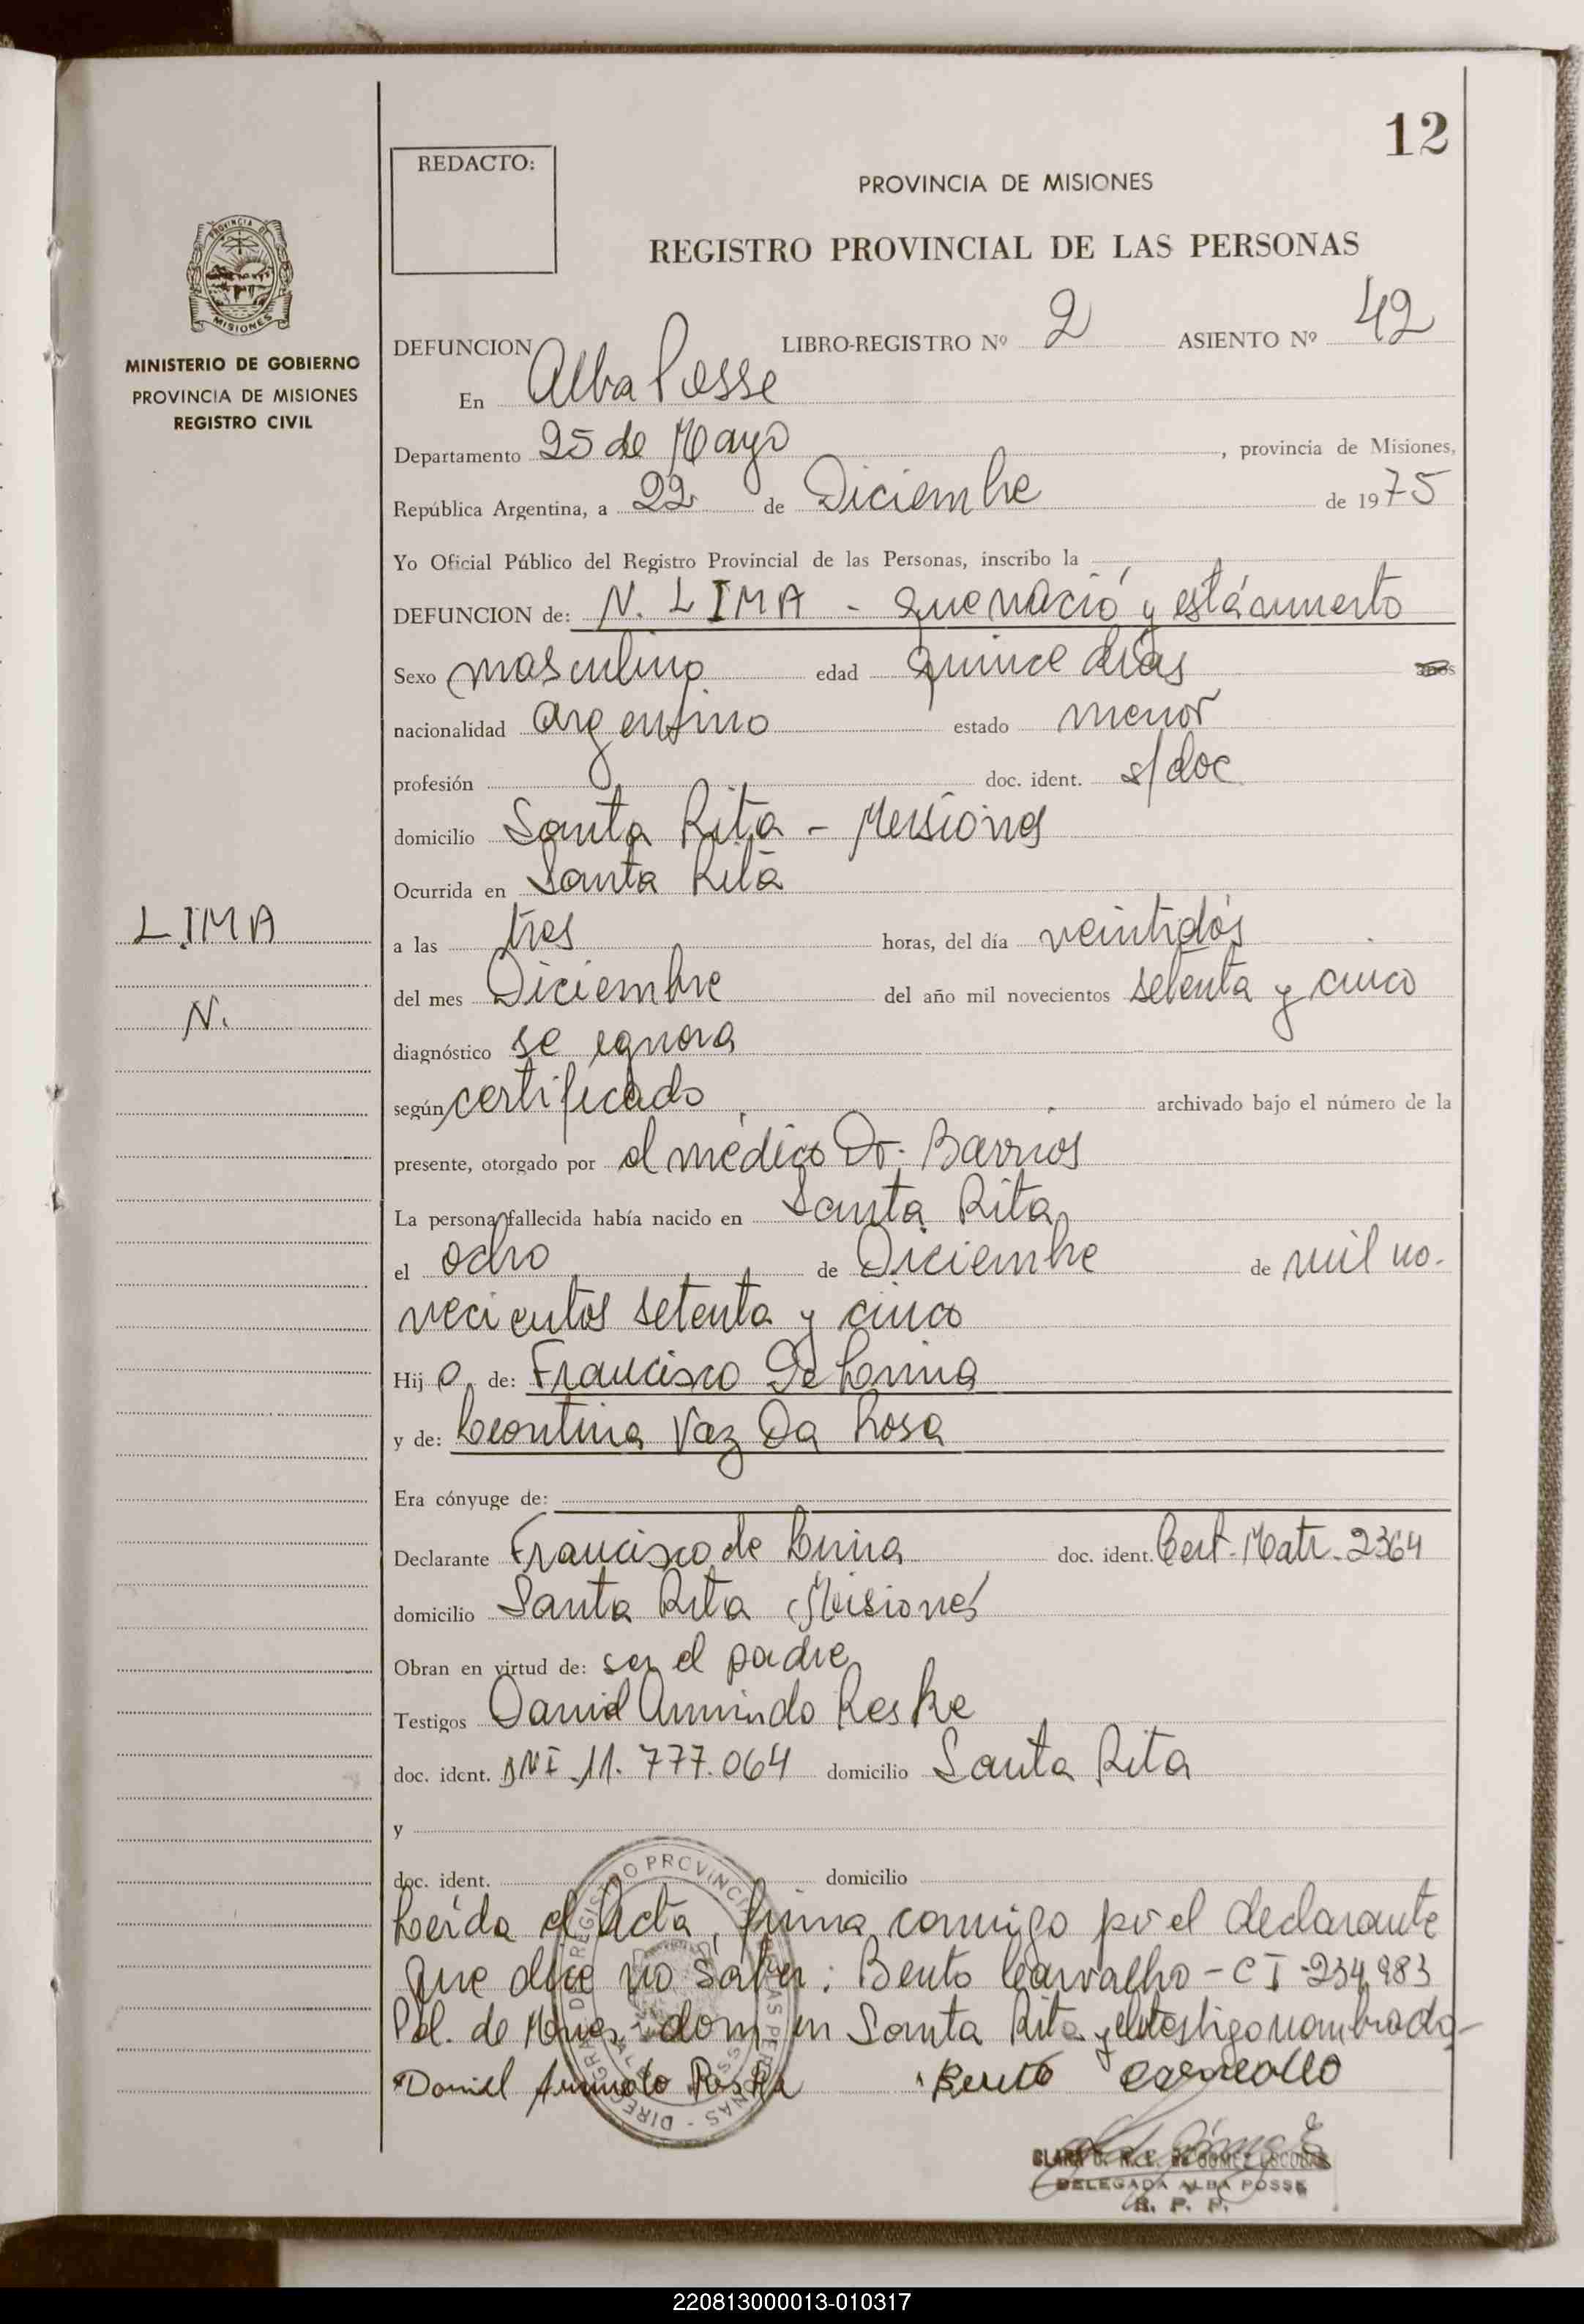 12
REDACTO:
PROVINCIA DE MISIONES
REGISTRO PROVINCIAL DE LAS PERSONAS
MISIONES
MINISTERIO DE GOBIERNO
PROVINCIA DE MISIONES
REGISTRO CIVIL
DEFUNCION LIBRO-REGISTRO Nº 2 ASIENTO Nº 42
En Alba Posse
Departamento 25 de Mayo, provincia de Misiones,
República Argentina, a 22 de Diciembre de 1975
Yo Oficial Público del Registro Provincial de las Personas, inscribo la
DEFUNCION de: N. LIMA - que nació y está muerto
Sexo masculino edad quince días años
nacionalidad argentino estado menor
profesión doc. ident. s/doc
domicilio Santa Rita - Misiones
Ocurrida en Santa Rita
LIMA
N.
a las tres horas, del día veintidós
del mes Diciembre del año mil novecientos setenta y cinco
diagnóstico se ignora
según certificado archivado bajo el número de la
presente, otorgado por el médico Dr. Barrios
La persona fallecida había nacido en Santa Rita
el ocho de Diciembre de mil no-
vecientos setenta y cinco
Hijo de: Francisco De Lima
y de: Leontina Vaz Da Rosa
Era cónyuge de:
Declarante Francisco de Lima doc. ident. Cert. Matr. 2364
domicilio Santa Rita Misiones
Obran en virtud de: ser el padre
Testigos Daniel Armindo Reske
doc. ident. DNI 11.777.064 domicilio Santa Rita
y
doc. ident. domicilio
Leída el Acta, firma conmigo por el declarante
que dice no saber: Bento Carvalho - CI - 234.983
Pol. de Mnes - dom en Santa Rita y el testigo nombrado-
Daniel Bento
DELEGADA ALBA POSSE
R. P. P.
220813000013-010317